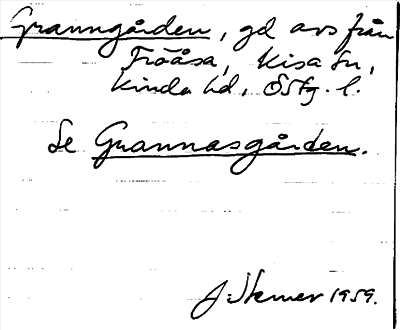 Granngården, gd avs från
Fröåsa, Kisa sn,
Kinda hd, Östg. l.
Se Grannasgården.
1959.